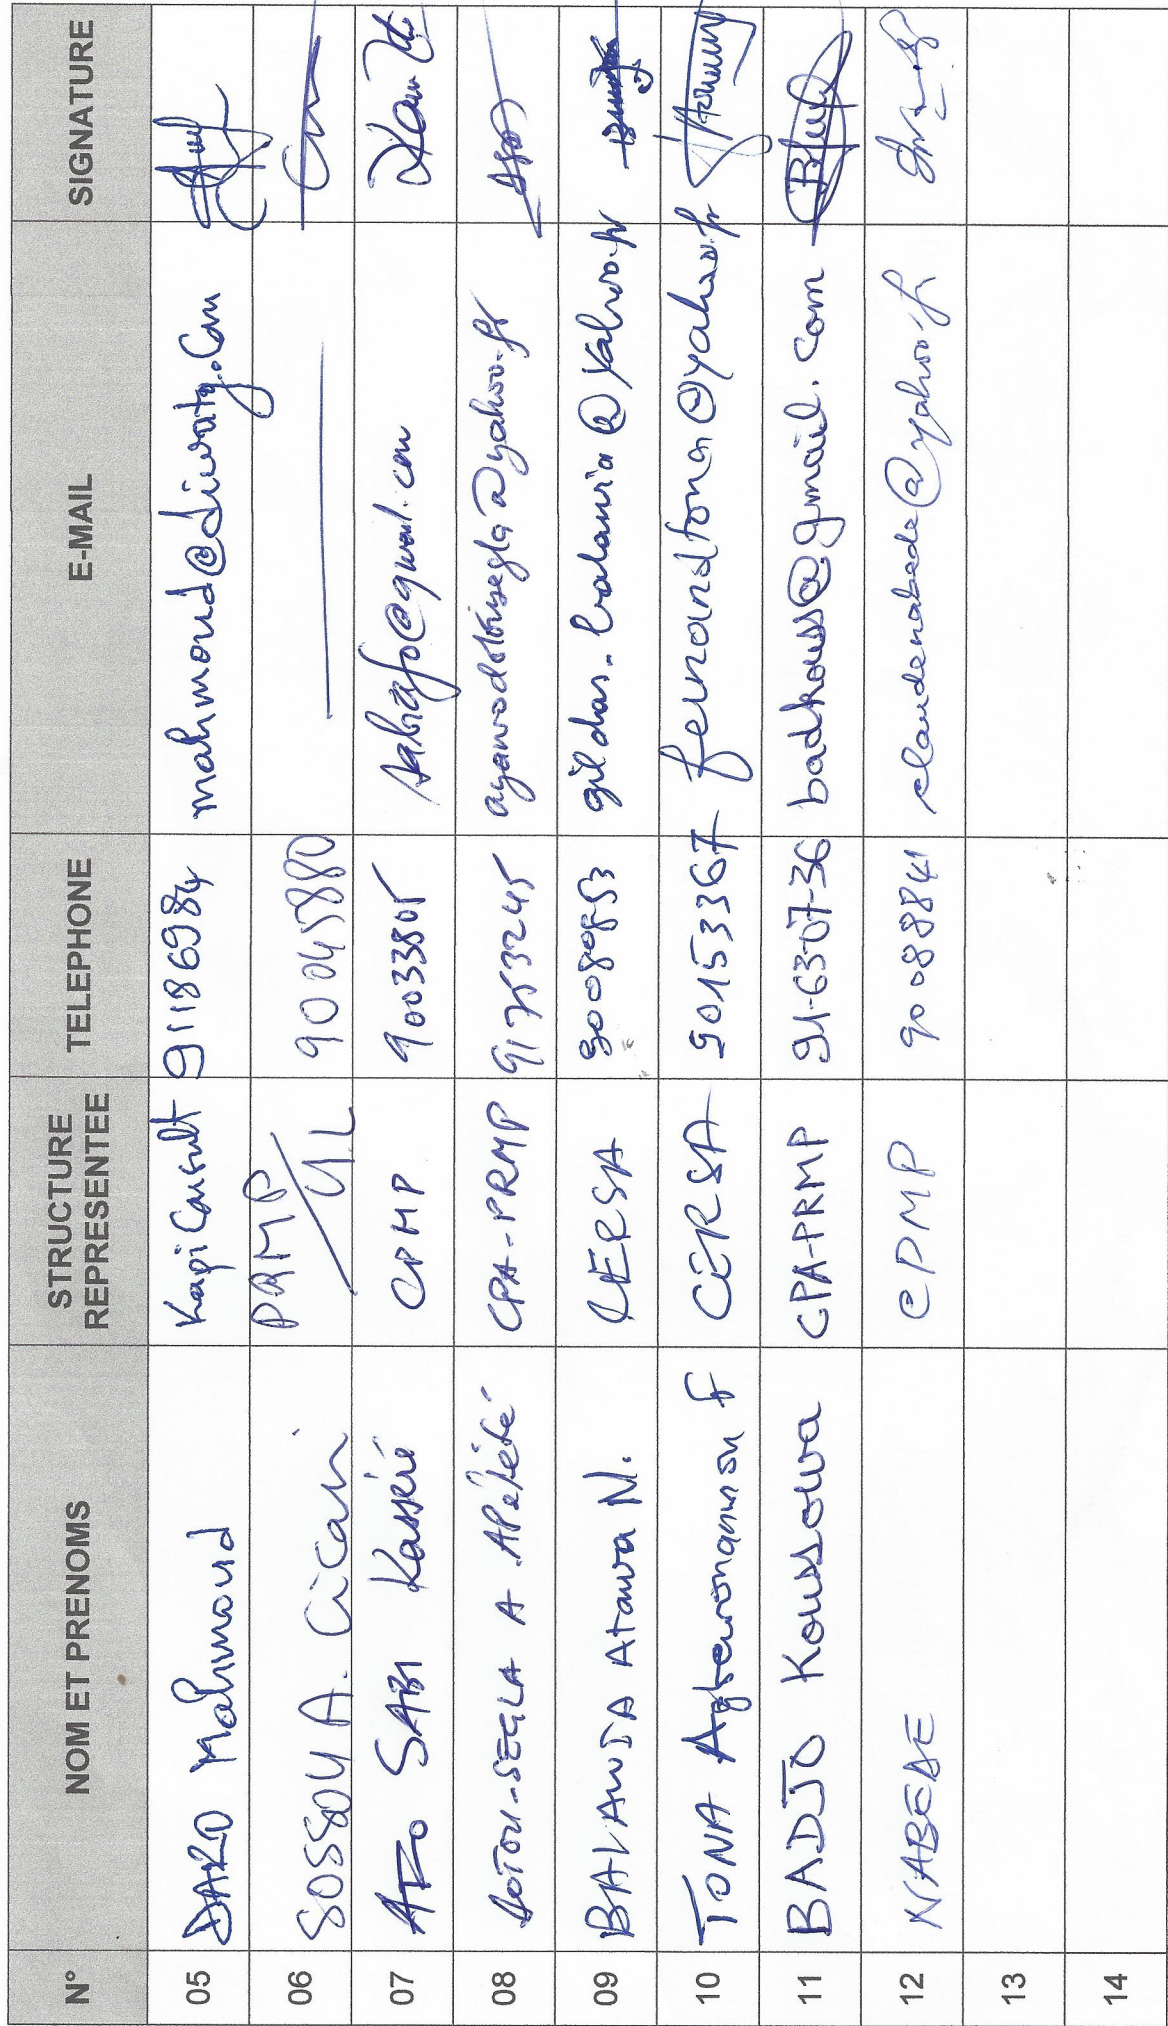 N° NOM ET PRENOMS STRUCTURE REPRESENTEE TELEPHONE E-MAIL SIGNATURE
05 DARO Mahmoud Kapi Consult 91186984 mahmoud@diwatg.com
06 SOSSOU A. Cicari PRMP/UL 90045880
07 AFO SABI Kasséré CPMP 90033805 sabiafo@gmail.com
08 AOTOU-SEGLA A APélété CPA-PRMP 91753245
09 BALAWIA Atawa N. CERSA 90080853 gildas_balawia@yahoo.fr
10 TONA F CERSA 90153367 fernandtona@yahoo.fr
11 BADJO Koussowa CPA-PRMP 91-63-07-36 badkouss@gmail.com
12 NABEDE CPMP 90088841 claudenabede@yahoo.fr
13
14